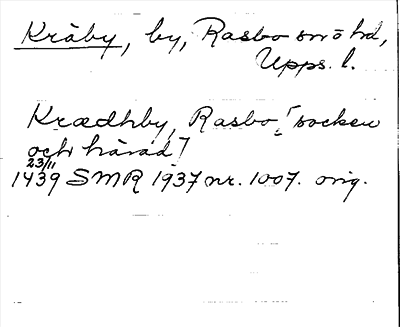 Kråby, by, Rasbo sn o hd,
Upps. l.
Krædhby, Rasbo [socken
och härad]
23/11
1439 SMR 1937 nr. 1007. orig.